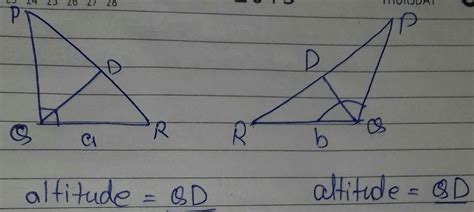 23 24 25 26 27 28 2015 THURSDAY
P P
D D
Q R R Q
a b
altitude = QD altitude = QD